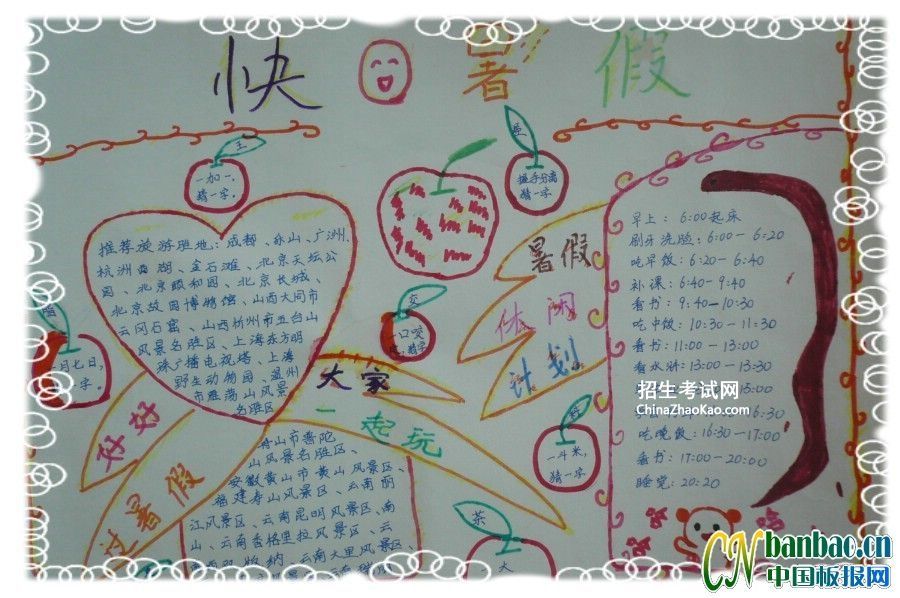 快 暑 假
王
一加一，
猜一字。
握手分离
猜一字
推荐旅游胜地：成都、乐山、广州、
杭州西湖、金石滩、北京天坛公
园、北京颐和园、北京长城、
北京故园博物馆、山西大同市
云冈石窟、山西忻州市五台山
风景名胜区、上海东方明
珠广播电视塔、上海
野生动物园、温州
市雁荡山风景
名胜区
月七日，
字。
一口
猜字
暑假
休闲
计划
大家
一起玩
好好
过暑假
舟山市普陀
山风景名胜区、
安徽黄山市黄山风景区、
福建寿山风景区、云南丽
江风景区、云南昆明风景区、南
山、云南香格里拉风景区、云
版纳、云南大里风景区、
一斗米，
猜一字
茶
大
早上：6:00起床
刷牙洗脸：6:00-6:20
吃早饭：6:20-6:40
补课：6:40-9:40
看书：9:40-10:30
吃中饭：10:30-11:30
看书：11:00-13:00
看水浒：13:00-13:30
15:00
6:30
吃晚饭：16:30-17:00
看书：17:00-20:00
睡觉：20:20
招生考试网
ChinaZhaoKao.com
CN banbao.cn
中国板报网